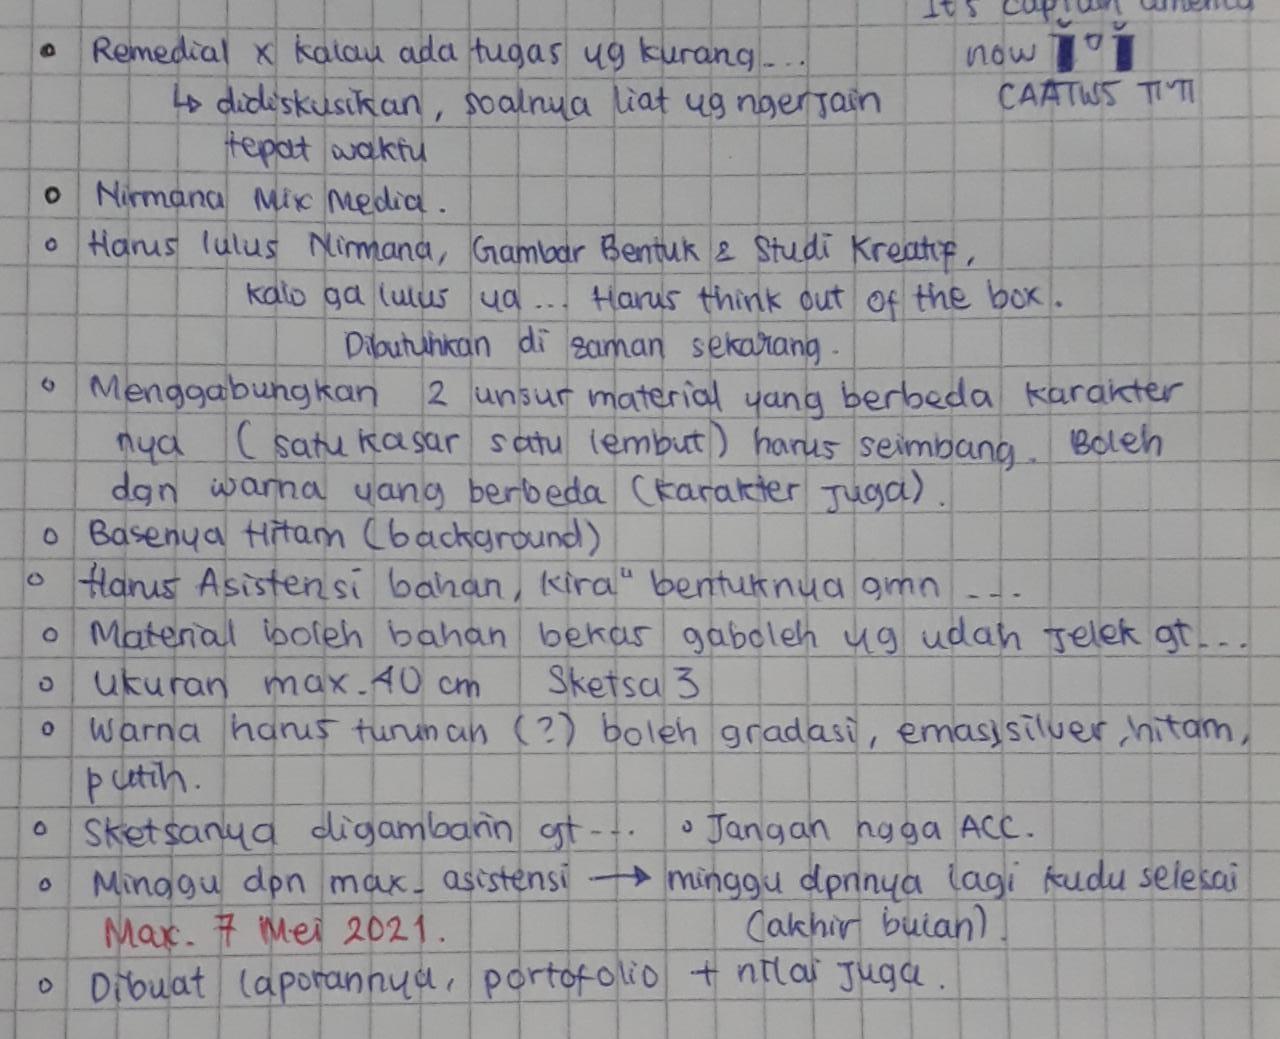 It's captain america
now
CAATWS TTTT
• Remedial x kalau ada tugas yg kurang...
↳ didiskusikan, soalnya liat yg ngerjain
tepat waktu
o Nirmana Mix Media.
o Harus lulus Nirmana, Gambar Bentuk & Studi Kreatif,
kalo ga lulus ya... Harus think out of the box.
Dibutuhkan di zaman sekarang.
o Menggabungkan 2 unsur material yang berbeda karakter
nya (satu kasar satu lembut) harus seimbang. Boleh
dgn warna yang berbeda (karakter juga).
o Basenya Hitam (background)
o Harus Asistensi bahan, kira" bentuknya gmn ...
o Material boleh bahan bekas gaboleh yg udah jelek gt...
o Ukuran max. 40 cm Sketsa 3
o Warna harus turunan (?) boleh gradasi, emas, silver, hitam,
putih.
o Sketsanya digambarin gt... o Jangan ngga ACC.
o Minggu dpn max. asistensi → minggu dpnnya lagi kudu selesai
Max. 7 Mei 2021. (akhir bulan).
o Dibuat laporannya, portofolio + nilai juga.